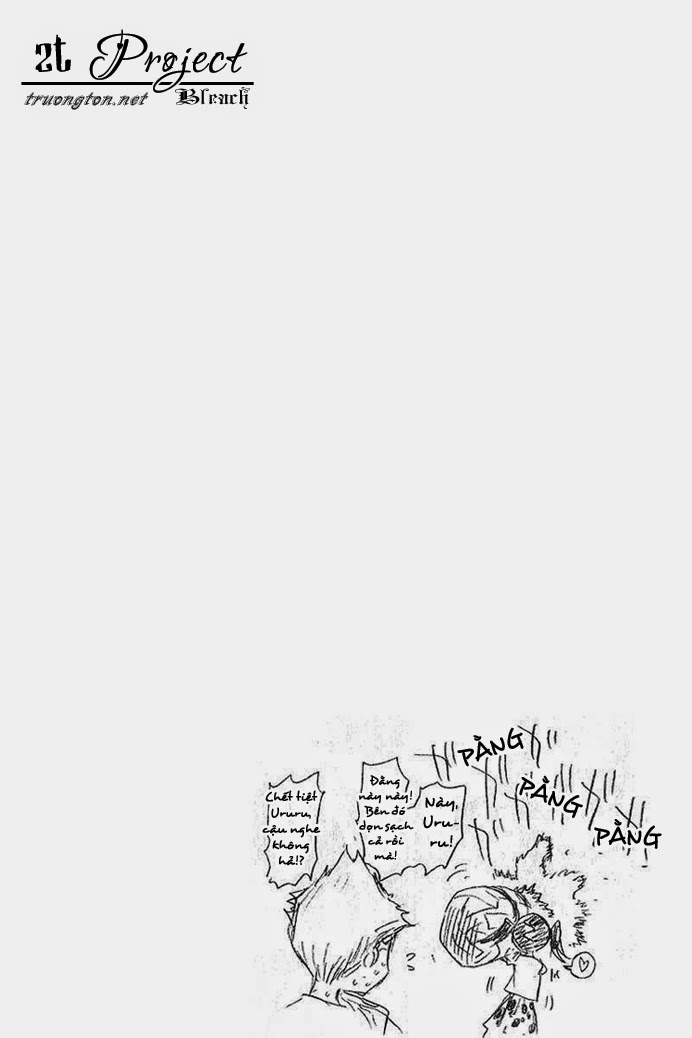 2t Project
truongton.net Bleach
PẰNG
PẰNG
PẰNG
Này,
Uru-
ru!
Đằng
này này!
Bên đó
dọn sạch
cả rồi
mà!
Chết tiệt
Ururu,
cậu nghe
không
hả!?
?